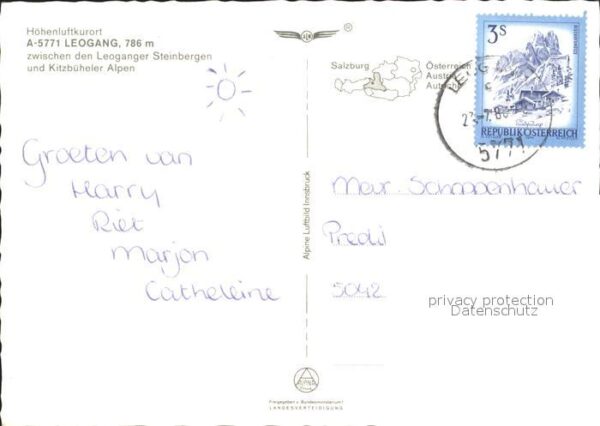 Höhenluftkurort
A-5771 LEOGANG, 786 m
zwischen den Leoganger Steinbergen
und Kitzbüheler Alpen
Salzburg
Österreich
Austria
Autriche
3S
REPUBLIK ÖSTERREICH
5771
Groeten van
Harry
Riet
Marjon
Catheleine
Alpine Luftbild Innsbruck
Schoppenhauer
5042
privacy protection
Datenschutz
Freigegeben v. Bundesministerium f.
LANDESVERTEIDIGUNG